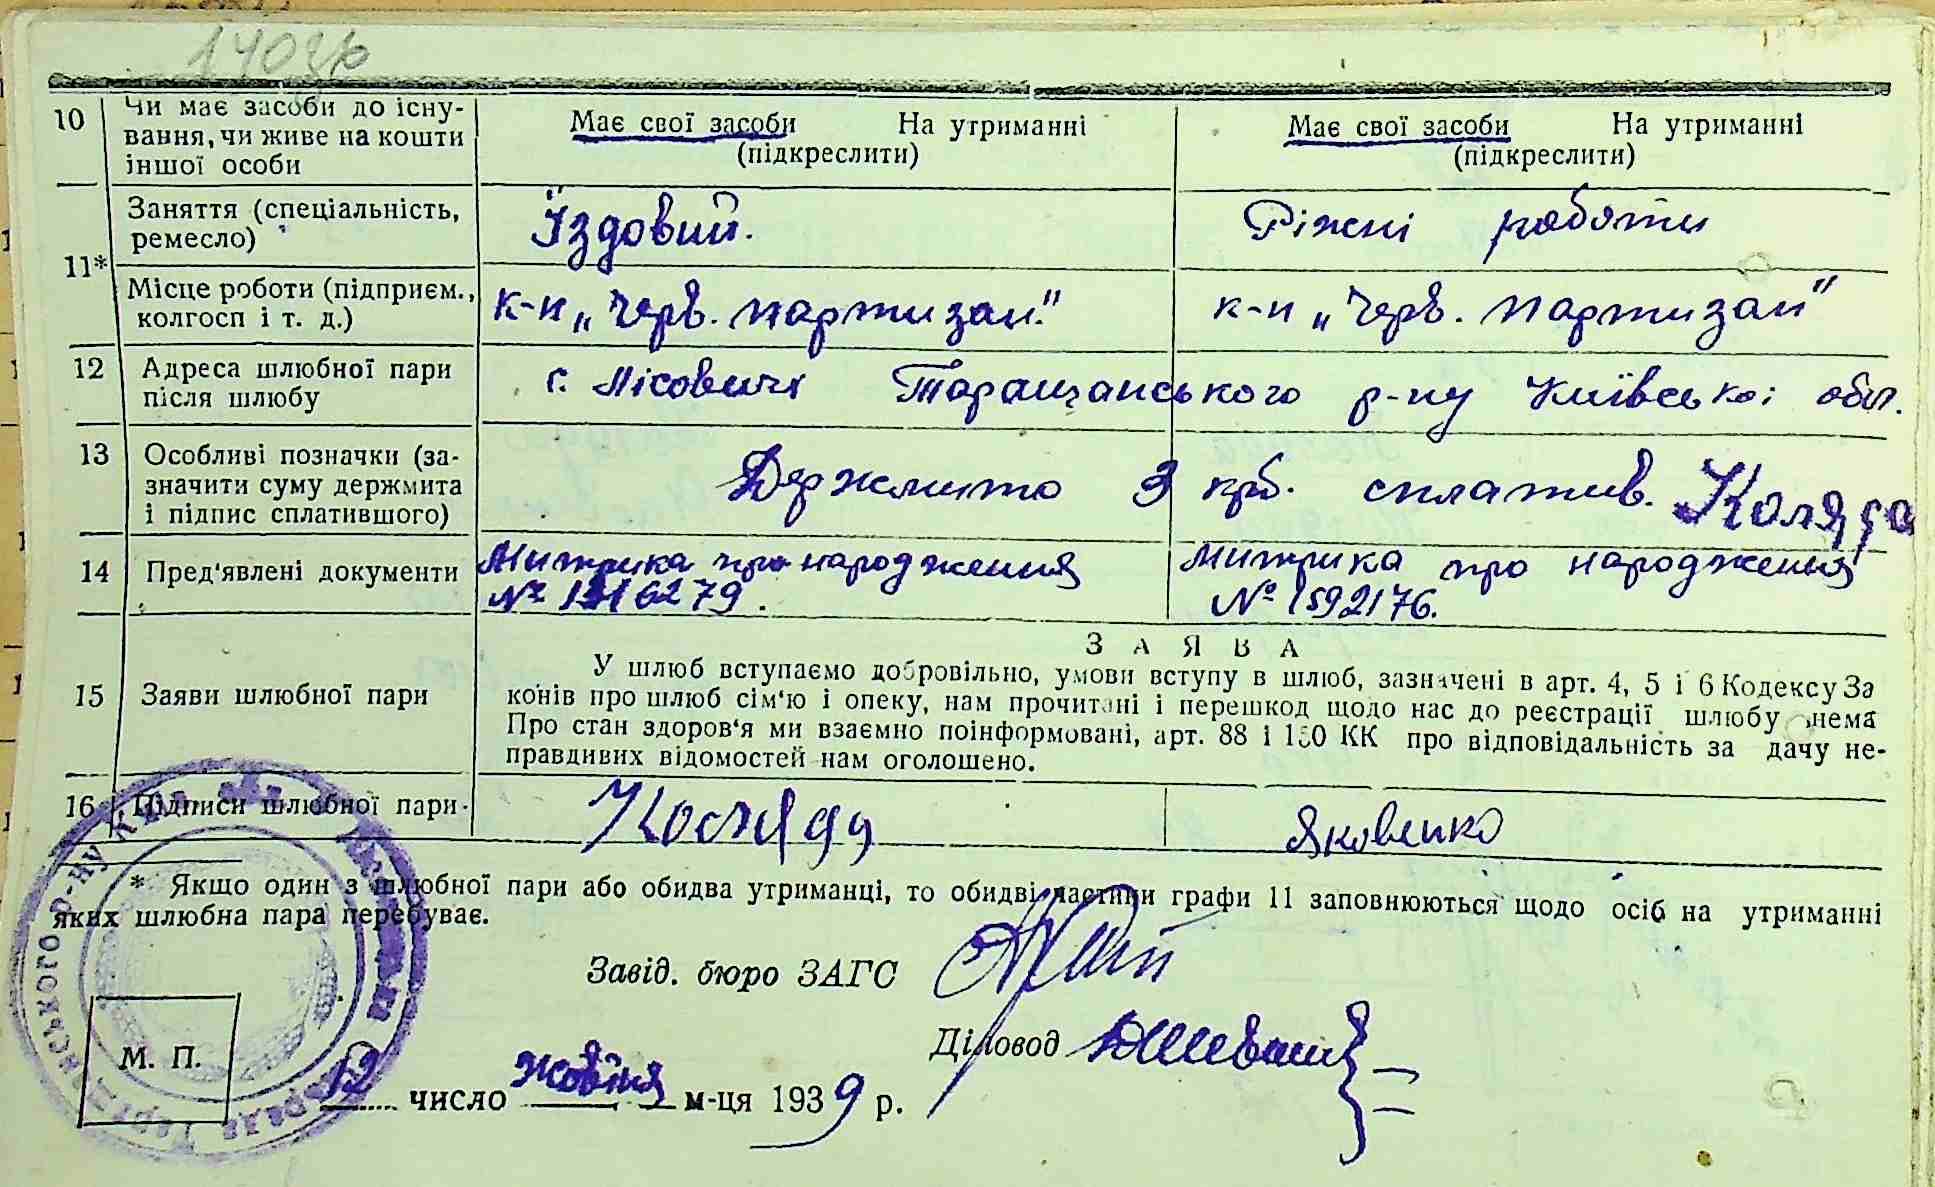 10 Чи має засоби до існу-
вання, чи живе на кошти
іншої особи
Має свої засоби На утриманні
(підкреслити)
Має свої засоби На утриманні
(підкреслити)
11*
Заняття (спеціальність,
ремесло)
Їздовий.
Ріжні роботи
Місце роботи (підприєм.,
колгосп і т. д.)
к-п „Черв. партизан."
к-п „Черв. партизан"
12 Адреса шлюбної пари
після шлюбу
с. Лісовичі Таращанського р-ну Київської обл.
13 Особливі позначки (за-
значити суму держмита
і підпис сплатившого)
Держмито 3 крб. сплатив. Коляда
14 Пред'явлені документи
Митрика про народження
№
Митрика про народження
№ 1592176.
15 Заяви шлюбної пари
ЗАЯВА
У шлюб вступаємо добровільно, умови вступу в шлюб, зазначені в арт. 4, 5 і 6 Кодексу За
конів про шлюб сім'ю і опеку, нам прочитані і перешкод щодо нас до реєстрації шлюбу нема
Про стан здоров'я ми взаємно поінформовані, арт. 88 і КК про відповідальність за дачу не-
правдивих відомостей нам оголошено.
16 Підписи шлюбної пари
Коляда
Яковенко
* Якщо один з шлюбної пари або обидва утриманці, то обидві частини графи 11 заповнюються щодо осіб на утриманні
яких шлюбна пара перебуває.
Завід. бюро ЗАГС
Діловод
М. П.
12 число жовтня м-ця 1939 р.